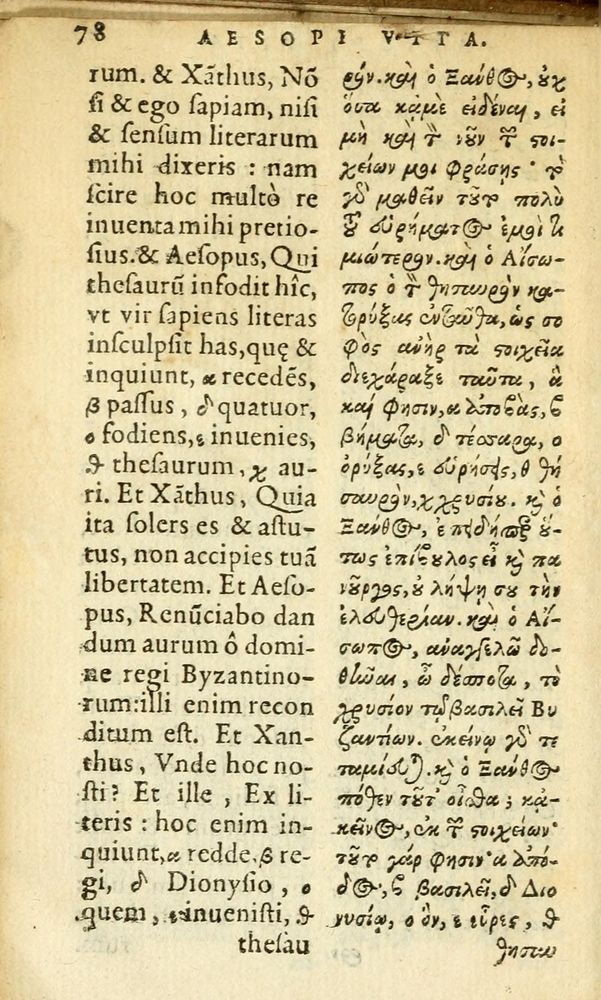 78 AESOPI VITA.
rum. & Xãthus, Nõ
ſi & ego ſapiam, niſi
& ſenſum literarum
mihi dixeris : nam
ſcire hoc multò re
inuenta mihi pretio-
ſius. & Aeſopus, Qui
theſaurũ infodit hîc,
vt vir ſapiens literas
inſculpſit has, quę &
inquiunt, α recedẽs,
β paſſus, δ quatuor,
ο fodiens, ε inuenies,
θ theſaurum, χ au-
ri. Et Xãthus, Quia
ita ſolers es & aſtu-
tus, non accipies tuã
libertatem. Et Aeſo-
pus, Renũciabo dan
dum aurum ô domi-
ne regi Byzantino-
rum: illi enim recon
ditum eſt. Et Xan-
thus, Vnde hoc no-
ſti? Et ille, Ex li-
teris : hoc enim in-
quiunt, α redde, β re-
gi, δ Dionyſio, ο
quem, ε inueniſti, θ
theſau
ρῶν. καὶ ὁ Ξάνθος, οὐχ
ὅσα κἀμὲ εἰδέναι, εἰ
μὴ καὶ τὸν νοῦν τῶν στοι-
χείων μοι φράσῃς· τὸ
γὰρ μαθεῖν τοῦτο πολὺ
τοῦ εὑρήματος ἐμοὶ τι
μιώτερον. καὶ ὁ Αἴσω-
πος ὁ τὸν θησαυρὸν κα-
τορύξας ἐνταῦθα, ὡς σο
φὸς ἀνὴρ τὰ στοιχεῖα
διεχάραξε ταῦτα, ἃ
καί φησιν, α ἀποβὰς, β
βήματα, δ τέσσαρα, ο
ὀρύξας, ε εὑρήσεις, θ θη
σαυρὸν, χ χρυσίου. καὶ ὁ
Ξάνθος, ἐπειδήπερ οὕ-
τως ἐπίβουλος εἶ καὶ πα
νοῦργος, οὐ λήψῃ σου τὴν
ἐλευθερίαν. καὶ ὁ Αἴ-
σωπος, ἀναγγελῶ δο-
θῆναι, ὦ δέσποτα, τὸ
χρυσίον τῷ βασιλεῖ Βυ
ζαντίων. ἐκείνῳ γὰρ τε
ταμίευται. καὶ ὁ Ξάνθος
πόθεν τοῦτ' οἶσθα; κἀ-
κεῖνος, ἐκ τῶν στοιχείων·
τοῦτο γάρ φησιν· α ἀπό-
δος, β βασιλεῖ, δ Διο
νυσίῳ, ο ὃν, ε εὗρες, θ
θησαυ